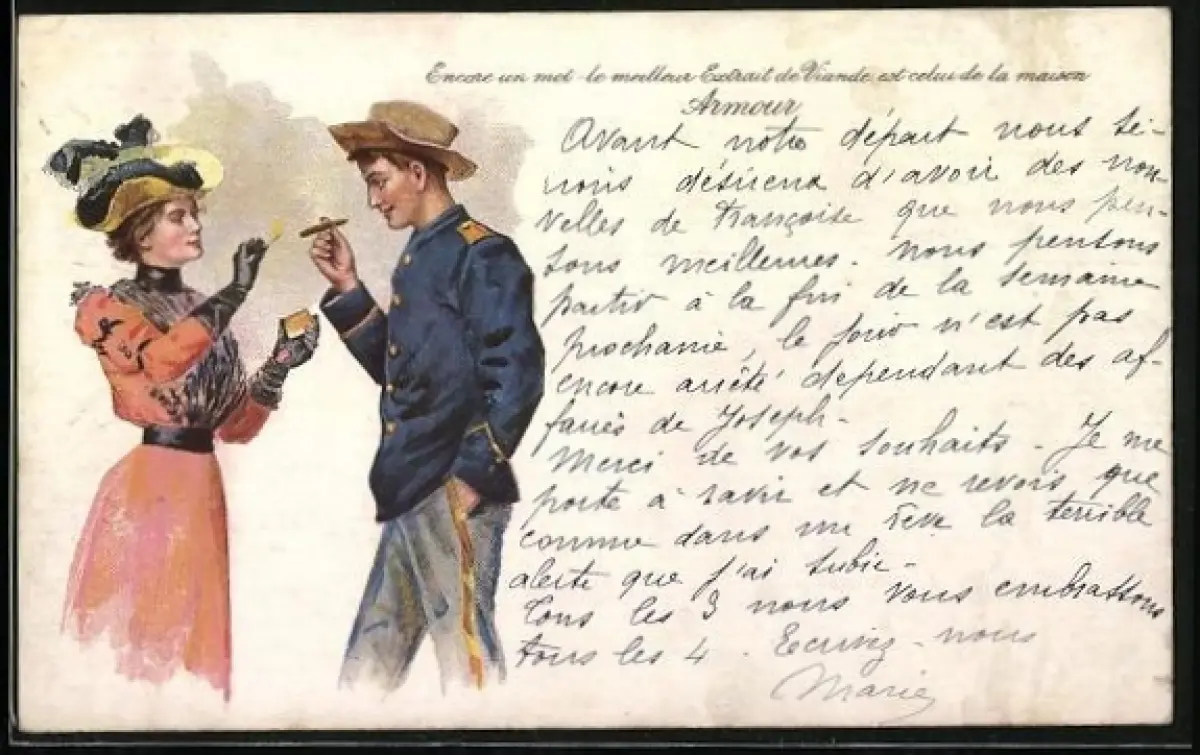 Encore un mot - le meilleur Extrait de Viande est celui de la maison
Armour
Avant notre départ nous se-
rions désireux d'avoir des nou-
velles de Françoise que nous pen-
sons meilleures. nous pensons
partir à la fin de la semaine
prochaine, le jour n'est pas
encore arrêté dépendant des af-
faires de Joseph -
Merci de vos souhaits - Je me
porte à ravir et ne revois que
comme dans un rêve la terrible
alerte que j'ai subie -
Tous les 3 nous vous embrassons
tous les 4. Ecrivez-nous
Marie